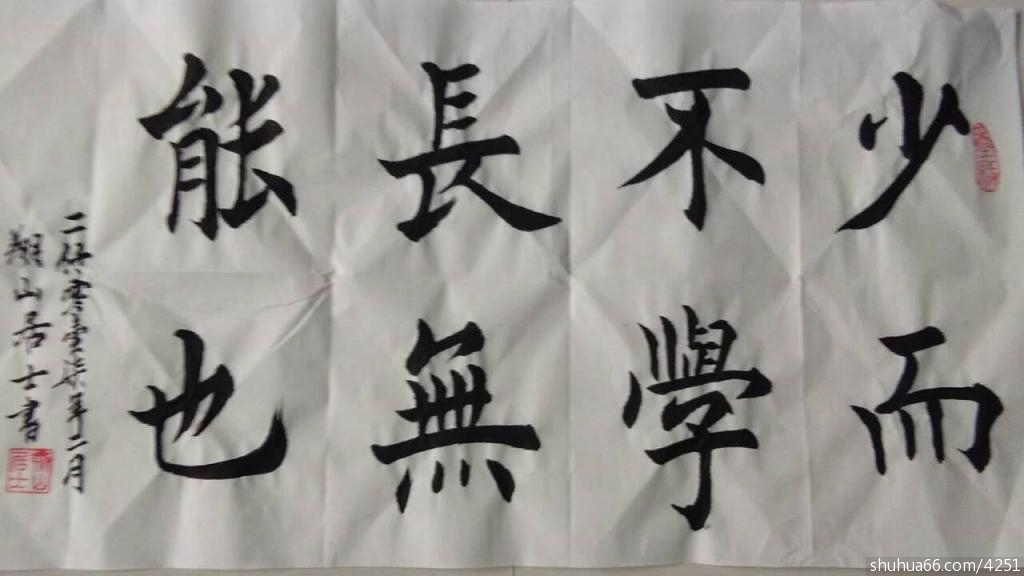 少而
不學
長無
能也
二仟零壹柒年二月
翔山居士書
shuhua66.com/4251